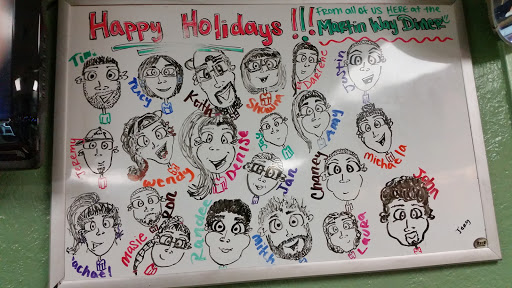 Happy Holidays!!!
From all of us HERE at the
Martin Way Diner
Tim
Tracy
Keith
Shawna
Darlene
Justin
Jeremy
Wendy
Denise
Joy
Amy
Michaela
Jan
Chaney
John
Rachael
Masie
Ron
Randee
Mitch
Laura